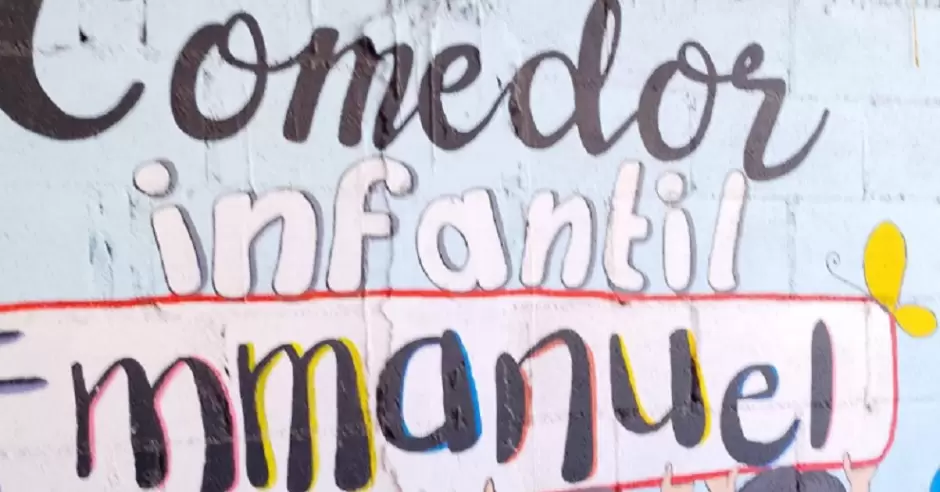 Comedor
infantil
Emmanuel